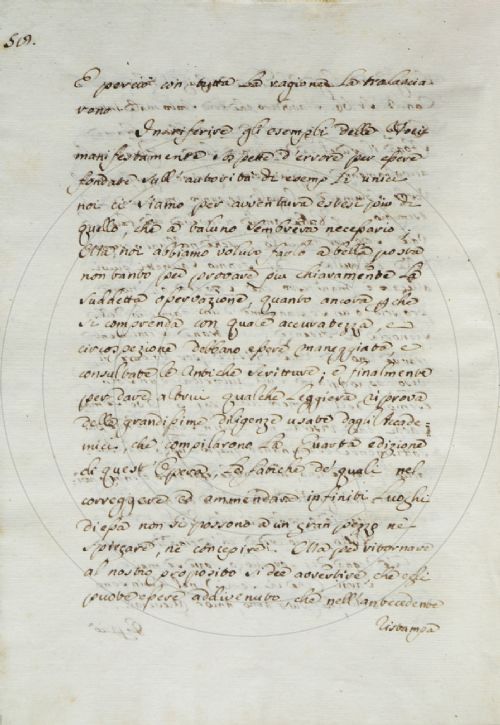 E perciò con tutta la ragione la tralascia
rono
In riferire gli esempli delle Voci
manifestamente sospette d'errore per essere
fondate sull'autorità di esempli unici
noi ci siamo per avventura estesi più di
quello che a taluno sembrerà necessario;
Ma noi abbiamo voluto farlo a bella posta
non tanto per provare più chiaramente la
suddetta osservazione, quanto ancora p che
si comprenda con quale accuratezza, e
circospezione debbano essere maneggiate e
consultate le Antiche Scritture, e finalmente
per dare altrui qualche leggiera riprova
delle grandissime diligenze usate dagli Accade
mici, che compilarono la Quarta edizione
di quest' la fatiche de' quali nel
correggere ed ammendare infiniti luoghi
di essa non si possono a un gran pezzo nè
spiegare, nè concepire. Ma per ritornare
al nostro proposito si dee avvertire, che
puote essere addivenuto che nell'antecedente
ristampa